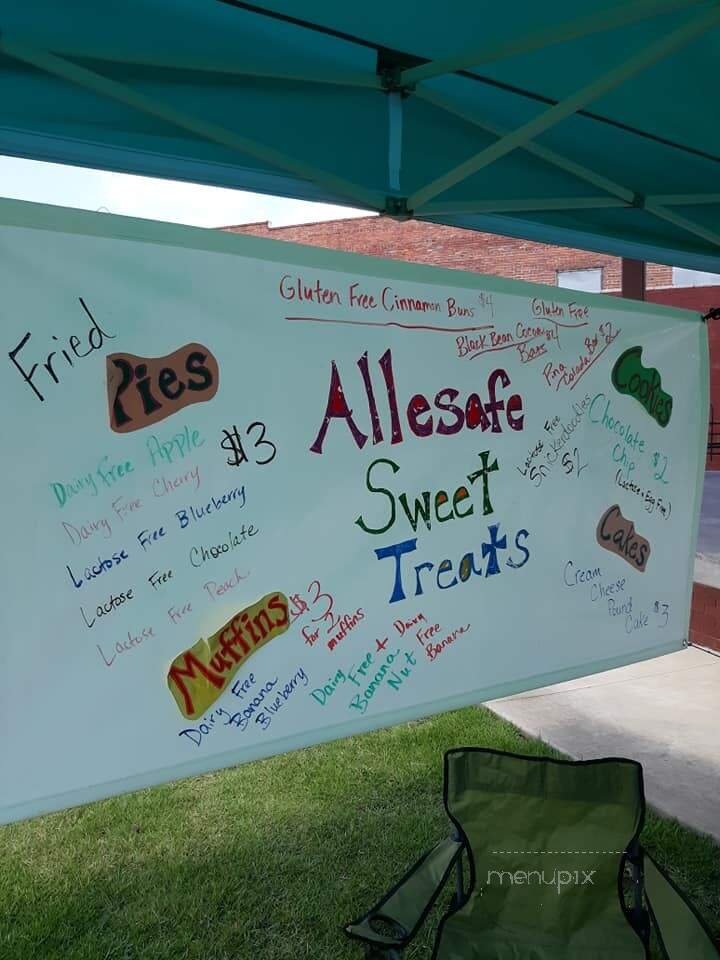 Fried
Pies
$3
Dairy Free Apple
Dairy Free Cherry
Lactose Free Blueberry
Lactose Free Chocolate
Lactose Free Peach
Muffins
$3
for 2
muffins
Dairy Free
Banana
Blueberry
Dairy Free +
Banana
Nut
Dairy
Free
Banana
Gluten Free Cinnamon Buns $4
Allesafe
Sweet
Treats
Gluten Free
Black Bean Cocoa $4
Bars
Pina
Colada Bar $2
Cookies
Lactose Free
Snickerdoodles
$2
Chocolate
Chip $2
(Lactose + Egg Free)
Cakes
Cream
Cheese
Pound
Cake $3
menupix